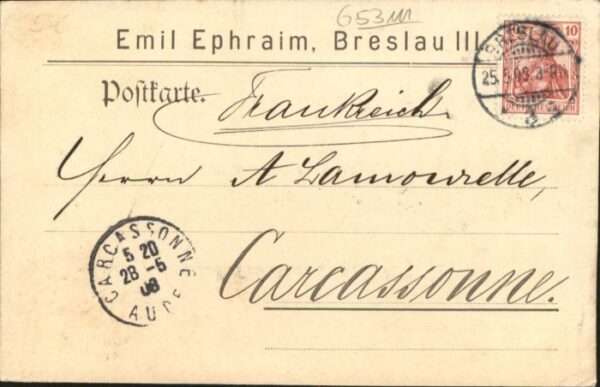 G53m
Emil Ephraim, Breslau III
10
BRESLAU
25.5.03
Postkarte.
Frankreich
Herrn A Lamourelle,
CARCASSONNE
5 20
28 -5
03
AUDE
Carcassonne.